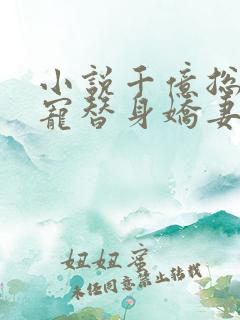 小說千億
寵替身嬌妻
妞妞蜜
未經同意禁止轉載